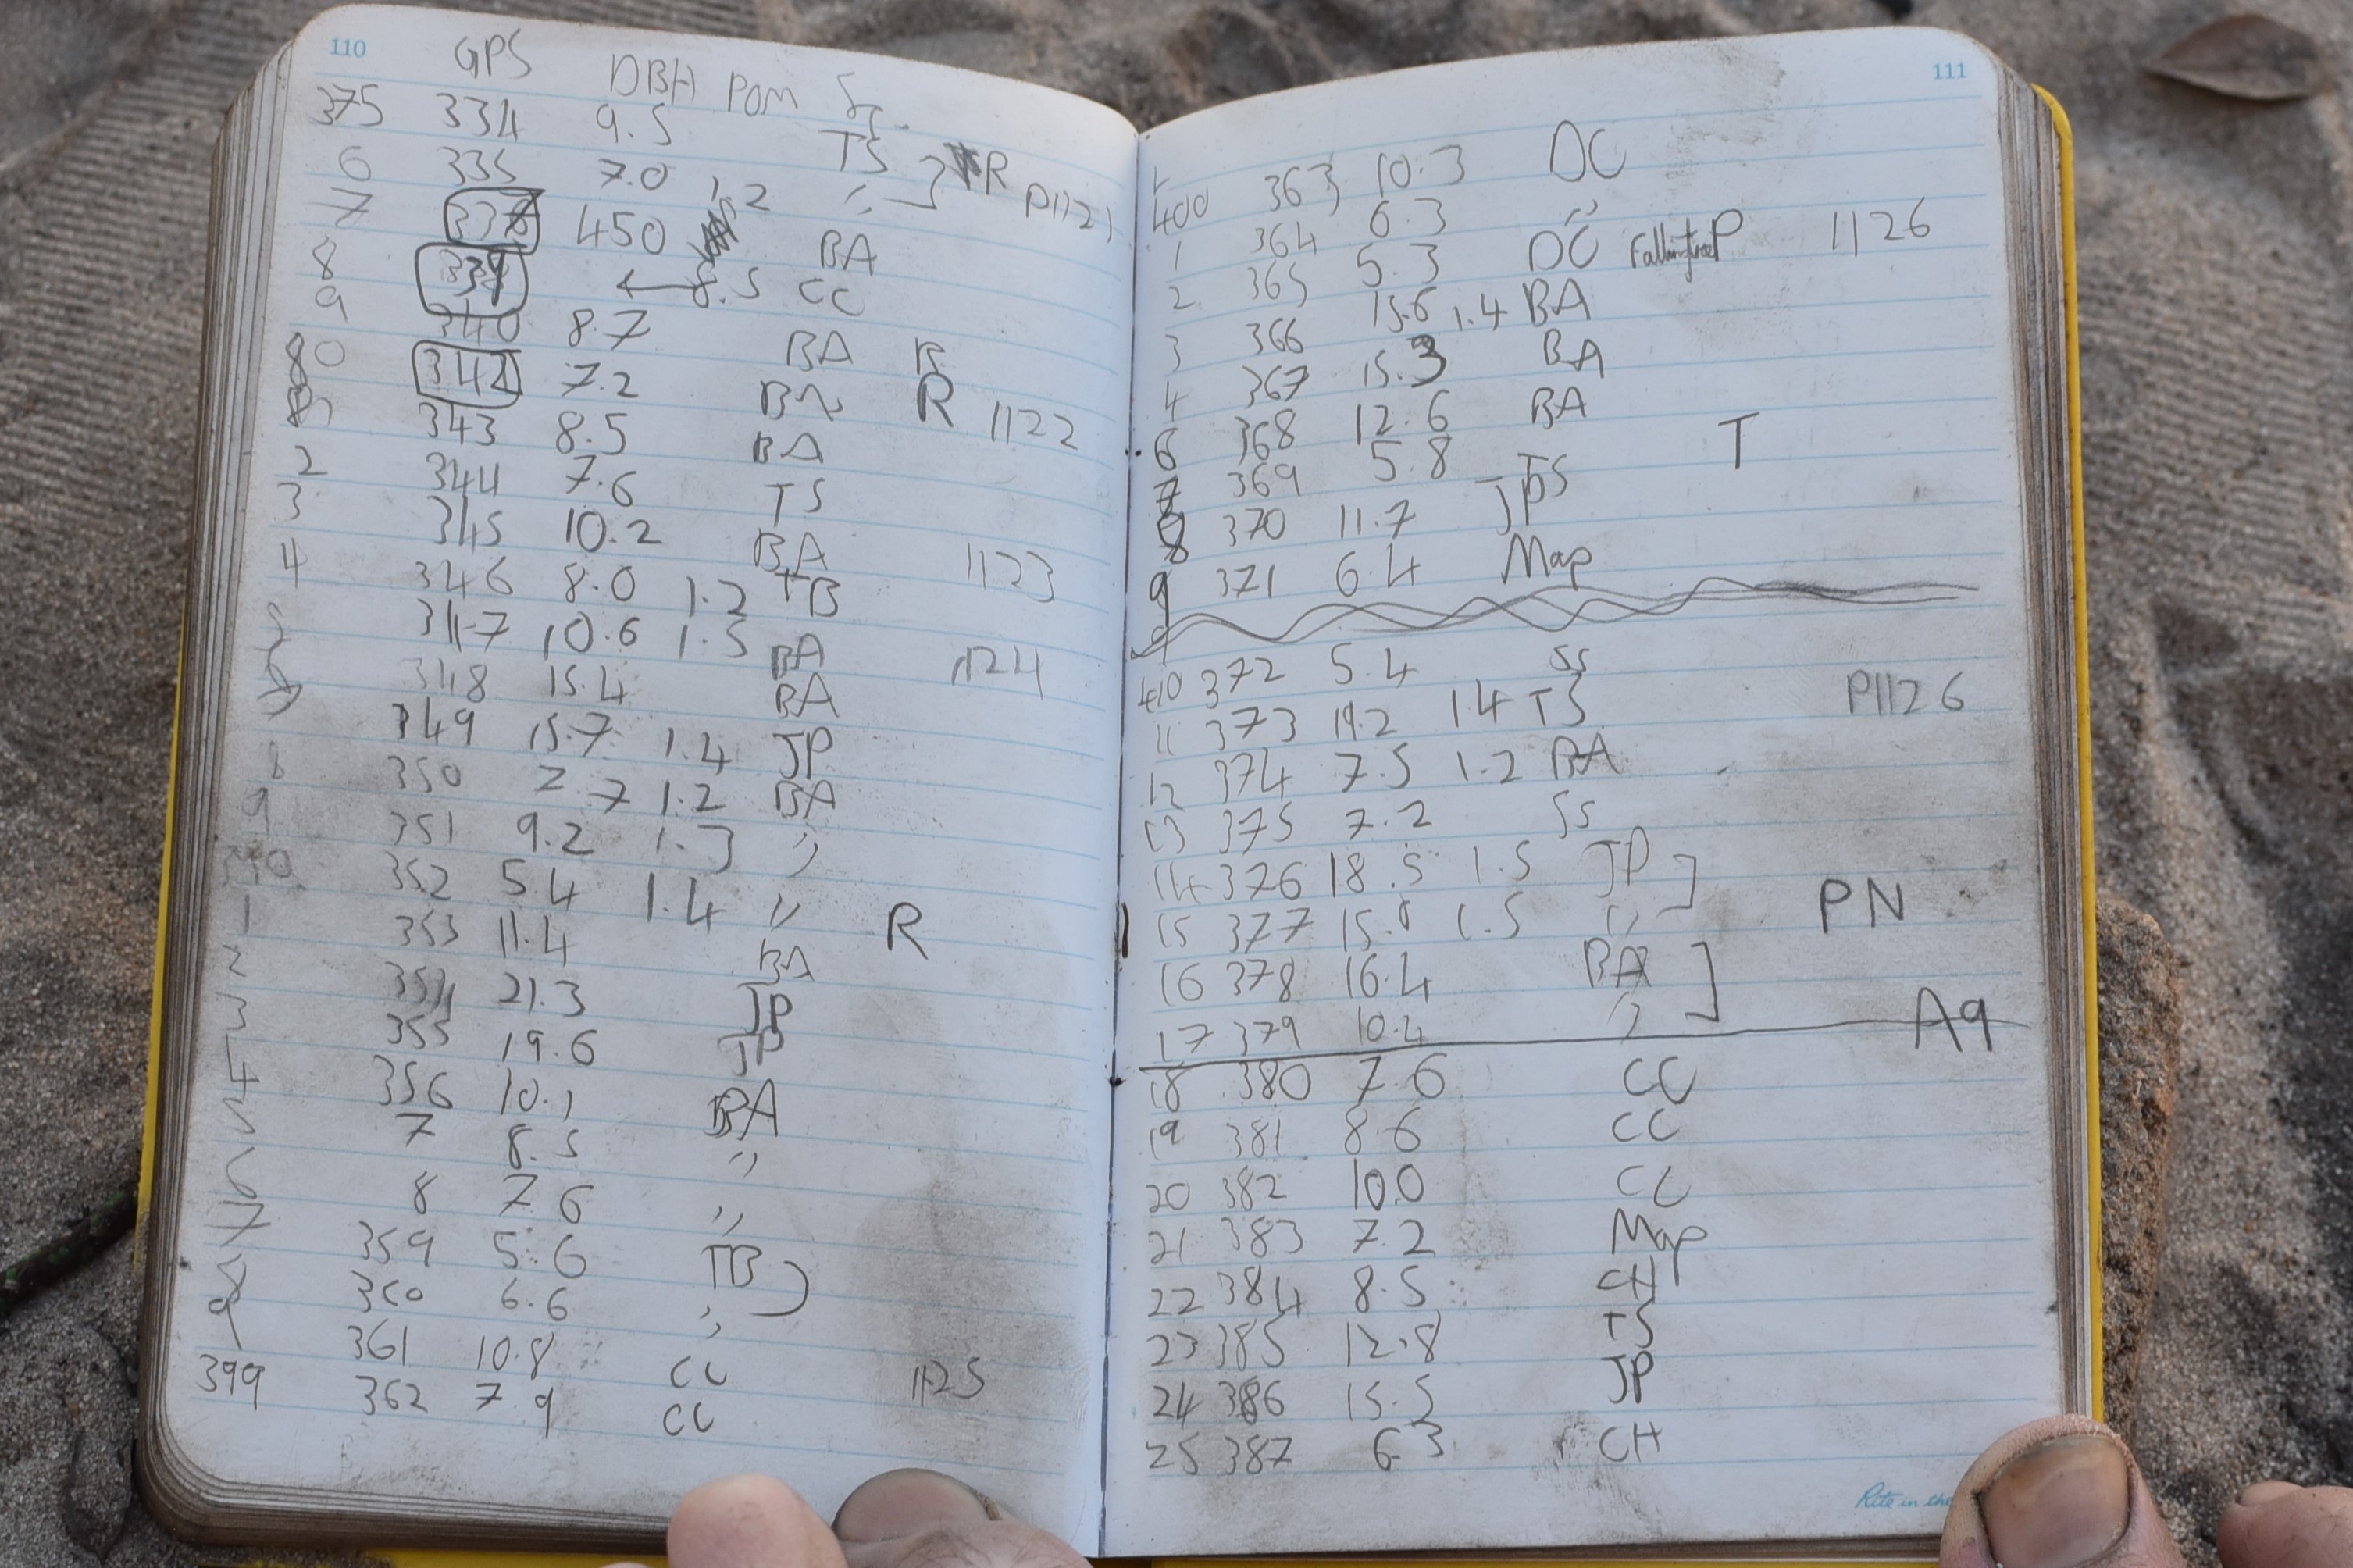 110
GPS DBH POM Sp.
375 334 9.5 TS R
6 335 7.0 1.2 " P1121
7 450 BA
8 339 8.5 CC
9 340 8.7 BA R
80 342 7.2 BA R 1122
343 8.5 BA
2 344 7.6 TS
3 345 10.2 BA 1123
4 346 8.0 1.2 TB
347 10.6 1.3 BA 1124
348 15.4 BA
349 15.7 1.4 JP
8 350 7.7 1.2 BA
9 351 9.2 1.3 "
390 352 5.4 1.4 "
1 353 11.4 BA R
2 354 21.3 JP
3 355 19.6 JP
4 356 10.1 BA
5 7 8.5 "
6 8 7.6 "
7 359 5.6 TB
8 360 6.6 "
9 361 10.8 CC
399 362 7.9 CC 1125
111
400 363 10.3 DC
1 364 6.3 "
2 365 5.3 DC Falling tree P 1126
3 366 15.6 1.4 BA
4 367 15.3 BA
6 368 12.6 BA
7 369 5.8 TS T
8 370 11.7 JP
9 371 6.4 Map
410 372 5.4 SS
11 373 19.2 1.4 TS P1126
12 374 7.5 1.2 BA
13 375 7.2 SS
14 376 18.5 1.5 JP
15 377 1.5 " PN
16 378 16.4 BA
17 379 10.4 " A9
18 380 7.6 CC
19 381 8.6 CC
20 382 10.0 CC
21 383 7.2 Map
22 384 8.5 CH
23 385 12.8 TS
24 386 15.5 JP
25 387 6.3 CH
Rite in the